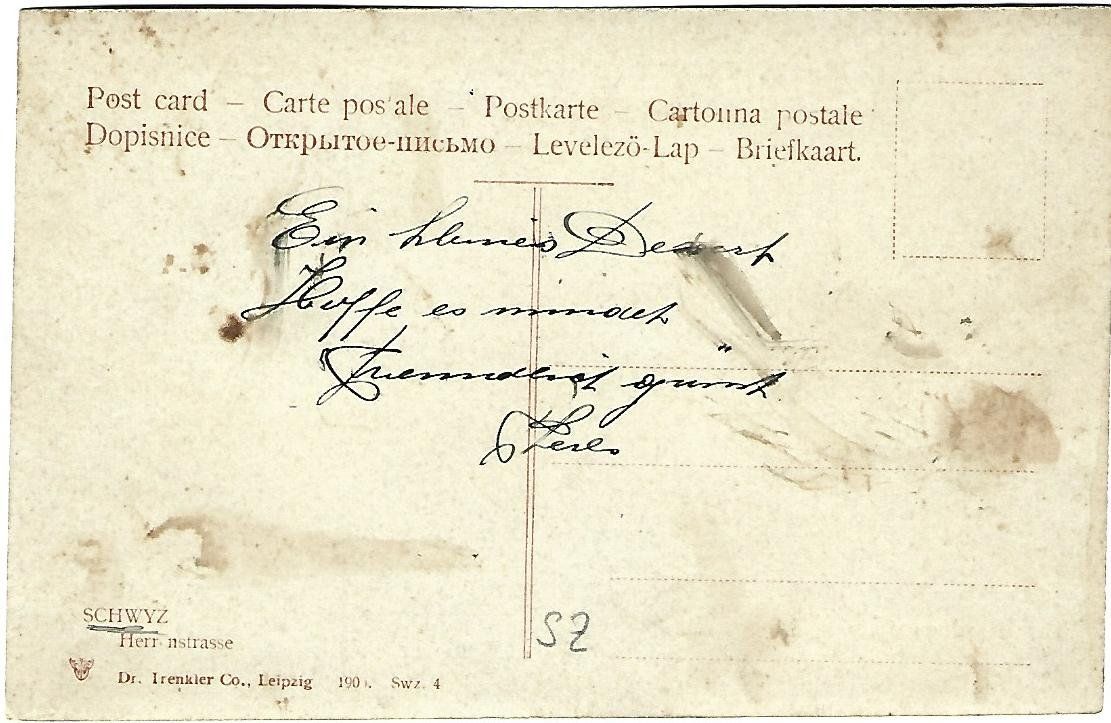 Post card – Carte postale – Postkarte – Cartolina postale
Dopisnice – Открытое-письмо – Levelező-Lap – Briefkaart.
Ein kleines Dessert
Hoffe es mundet
grüsst
SCHWYZ
Herrenstrasse
SZ
Dr. Trenkler Co., Leipzig 190 . Swz. 4